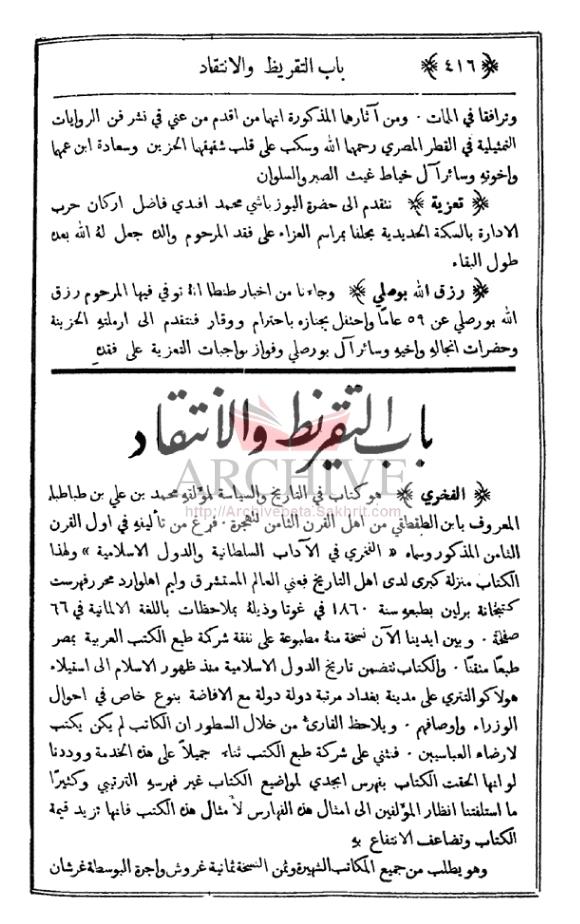 ﴿ ٤١٦ ﴾ باب التقريظ والانتقاد
وترافقا في الممات ٠ ومن آثارها المذكورة انها من اقدم من عني في نشر فن الروايات
التمثيلية في القطر المصري رحمها الله وسكب على قلب شقيقها الحزين وسعادة ابن عمها
واخوته وسائر آل خياط غيث الصبر والسلوان
﴿ تعزية ﴾ نتقدم الى حضرة اليوزباشي محمد افندي فاضل اركان حرب
الادارة بالسكة الحديدية بمجلنا بمراسم العزاء على فقد المرحوم والده جعل له الله بعده
طول البقاء
﴿ رزق الله بورصلي ﴾ وجاءنا من اخبار طنطا انه توفي فيها المرحوم رزق
الله بورصلي عن ٥٩ عاماً واحتفل بجنازه باحترام ووقار فنتقدم الى ارملته الحزينة
وحضرات انجاله واخيه وسائر آل بورصلي وفواز بواجبات التعزية على فقده
باب التقريظ والانتقاد
ARCHIVE
http://Archivebeta.Sakhrit.com
﴿ الفخري ﴾ هو كتاب في التاريخ والسياسة لمؤلفه محمد بن علي بن طباطبا
المعروف بابن الطقطقي من اهل القرن الثامن للهجرة ٠ فرغ من تأليفه في اول القرن
الثامن المذكور وسماه « الفخري في الآداب السلطانية والدول الاسلامية » ولهذا
الكتاب منزلة كبرى لدى اهل التاريخ فعني العالم المستشرق وليم اهلوارد محرر فهرست
كتبخانة برلين بطبعه سنة ١٨٦٠ في غوتا وذيله بملاحظات باللغة الالمانية في ٦٦
صفحة ٠ وبين ايدينا الآن نسخة منه مطبوعة على نفقة شركة طبع الكتب العربية بمصر
طبعاً متقناً ٠ والكتاب يتضمن تاريخ الدول الاسلامية منذ ظهور الاسلام الى استيلاء
هولاكو التتري على مدينة بغداد مرتبة دولة دولة مع الافاضة بنوع خاص في احوال
الوزراء واوصافهم ٠ ويلاحظ القارئ من خلال السطور ان الكاتب لم يكن يكتب
لارضاء العباسيين ٠ فنثني على شركة طبع الكتب ثناء جميلاً على هذه الخدمة ووددنا
لو انها الحقت الكتاب بفهرس ابجدي لمواضيع الكتاب غير فهرسه الترتيبي وكثيرًا
ما استلفتنا انظار المؤلفين الى امثال هذه الفهارس لأمثال هذه الكتب فانها تزيد قيمة
الكتاب وتضاعف الانتفاع به
وهو يطلب من جميع المكاتب الشهيرة وثمن النسخة ثمانية غروش واجرة البوسطة غرشان